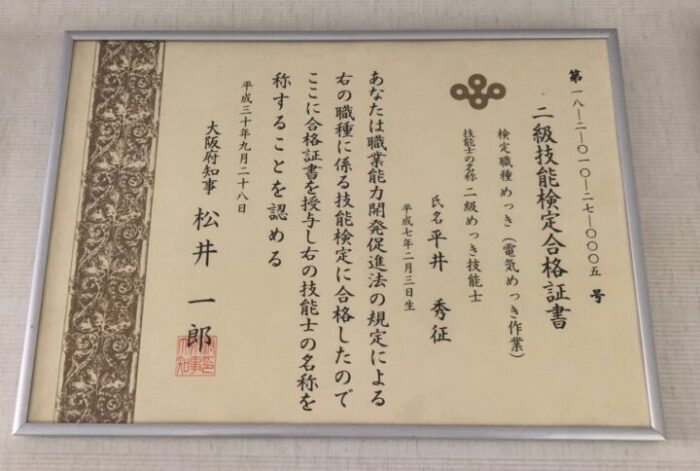 第一八—二—〇一〇—二七—〇〇〇五号
二級技能検定合格証書
検定職種 めっき(電気めっき作業)
技能士の名称 二級めっき技能士
氏名 平井 秀征
平成七年二月三日生
あなたは職業能力開発促進法の規定による
右の職種に係る技能検定に合格したので
ここに合格証書を授与し右の技能士の名称を
称することを認める
平成三十年九月二十八日
大阪府知事 松井 一郎